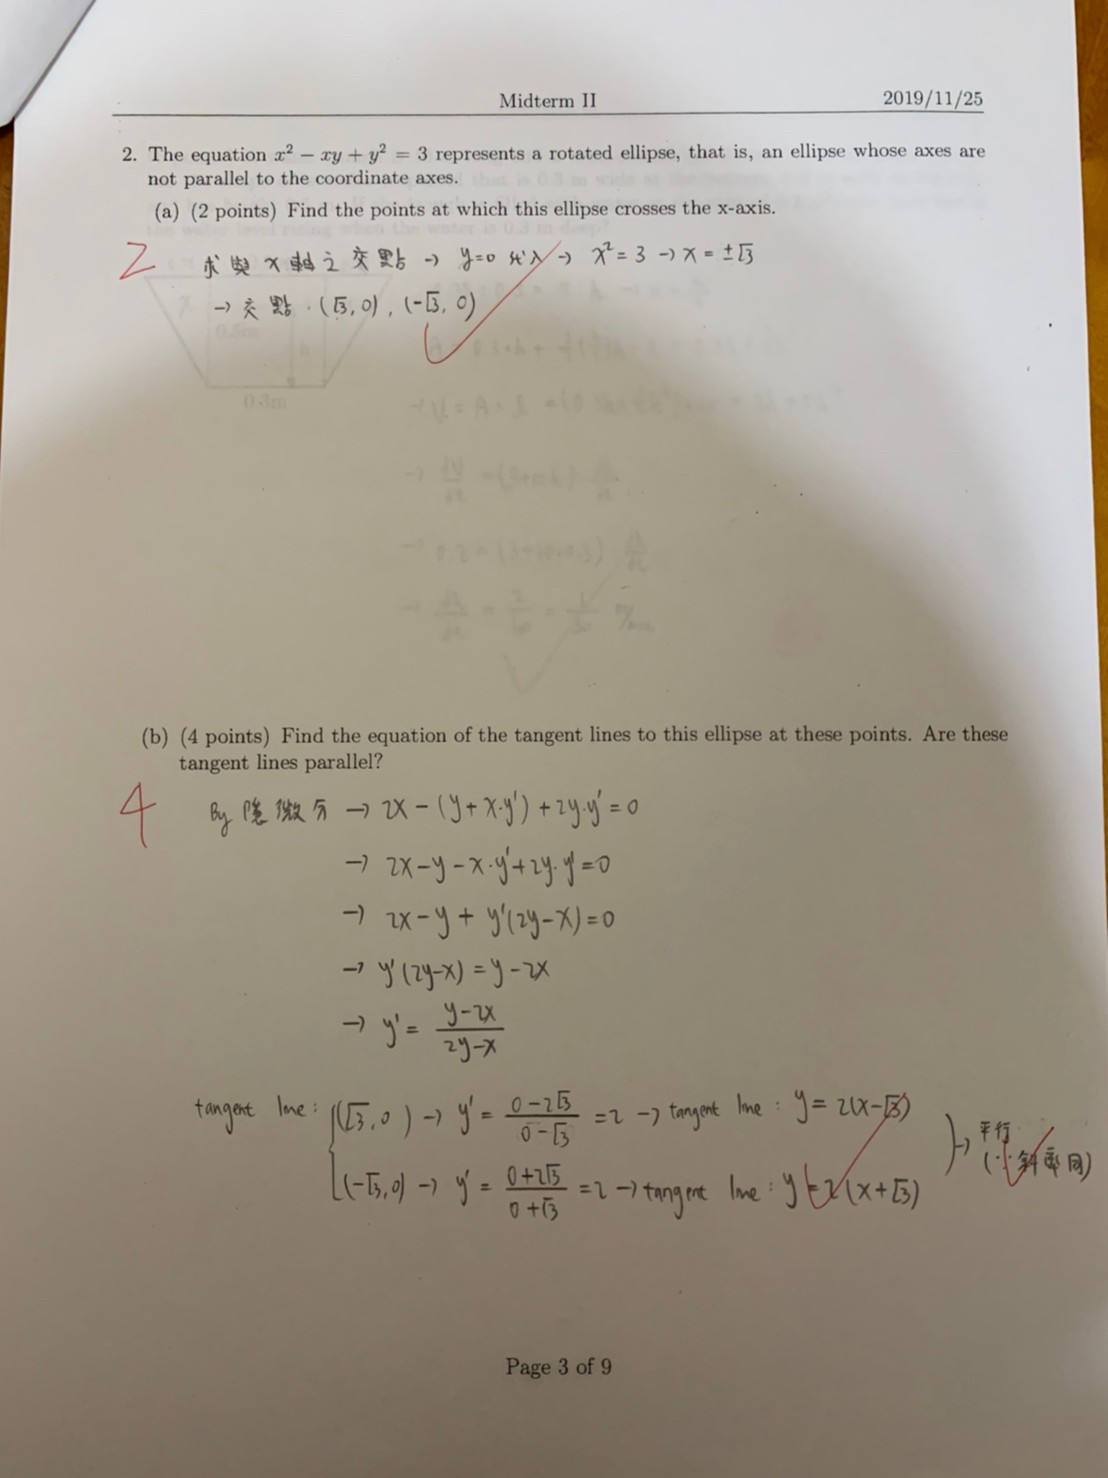 Midterm II 2019/11/25
2. The equation x² − xy + y² = 3 represents a rotated ellipse, that is, an ellipse whose axes are
not parallel to the coordinate axes.
(a) (2 points) Find the points at which this ellipse crosses the x-axis.
2 求與 x 軸之交點 → y=0 代入 → x² = 3 → x = ±√3
→ 交點 · (√3, 0), (-√3, 0)
0.3m
(b) (4 points) Find the equation of the tangent lines to this ellipse at these points. Are these
tangent lines parallel?
4 By 隱微分 → 2x - (y + x·y') + 2y·y' = 0
→ 2x - y - x·y' + 2y·y' = 0
→ 2x - y + y'(2y-x) = 0
→ y'(2y-x) = y - 2x
→ y' = (y-2x)/(2y-x)
tangent line : (√3, 0) → y' = (0-2√3)/(0-√3) = 2 → tangent line : y = 2(x-√3)
(-√3, 0) → y' = (0+2√3)/(0+√3) = 2 → tangent line : y = 2(x+√3)
→ 平行
(∵斜率同)
Page 3 of 9